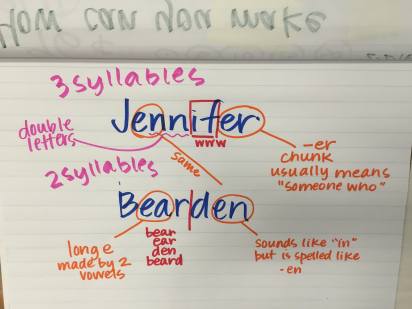 How can you make
3 syllables
Jennifer
www
double
letters
-er
chunk
usually means
"someone who"
same
2 syllables
Bearden
bear
ear
den
beard
long e
made by 2
vowels
sounds like "in"
but is spelled like
-en